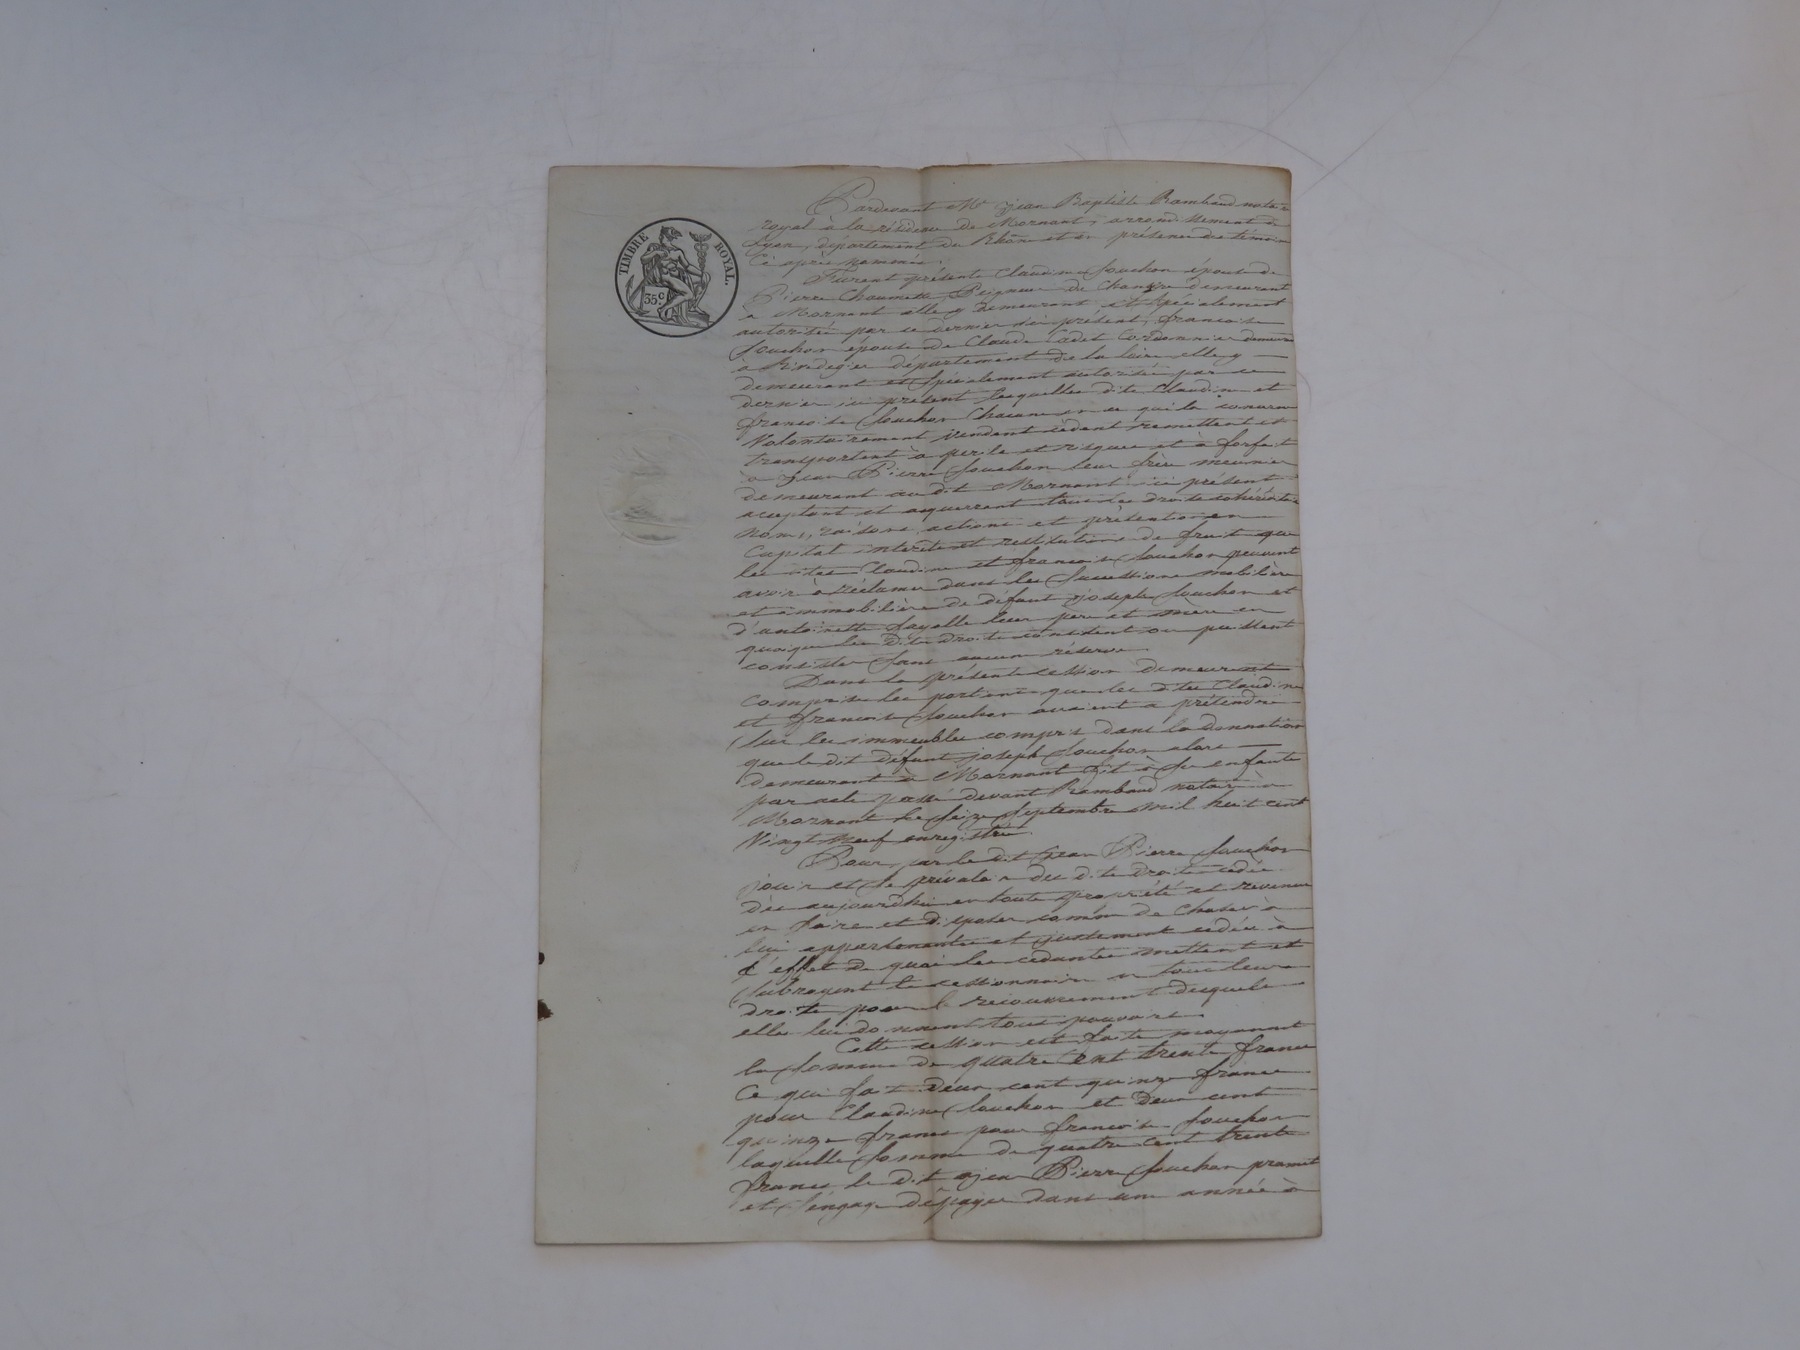 TIMBRE ROYAL.
35c.
Pardevant Me jean Baptiste Rambaud notaire
royal à la résidence de Mornant, arrondissement de
Lyon, département du Rhône et en présence des témoins
Ci après nommés,
Furent présente Claudine Souchon épouse de
Pierre Chaumette Peigneur de Chanvre demeurant
a Mornant elle y demeurant et Spécialement
autorisée par ce dernier ici présent, francoise
Souchon épouse de Claude Cadet Cordonnier demeurant
à département de la loire elle y
demeurant et Spécialement autorisée par ce
dernier ici présent lesquelles dite Claudine et
francoise Souchon Chacune en ce qui la concerne
Volontairement Vendent cédent remettent et
transportent à perile et risques et à forfait
à jean Pierre Souchon leur frère meunier
demeurant au dit Mornant ici présent
aceptant et aquerrant tous les droits cohéréditaires
noms, raisons, actions et prétentions en
Capital intérêts et restitutions de fruits que
les dites Claudine et francoise Souchon peuvent
avoir à réclamer dans les Successions mobilière
et immobilière de défunt joseph Souchon et
d'antoinette fayolle leur pere et mere en
quoi que les dits droits consistent ou puissent
consister Sans aucun réserve
Dans la présente cession demeurent
comprise les portions que les dites Claudine
et francoise Souchon avaient a prétendre
Sur les immeubles compris dans la donnation
que le dit défunt joseph Souchon alors
demeurant à Mornant fit à Ses enfants
par acte passé devant Rambaud notaire à
Mornant le Seize Septembre mil huit cent
Vingt neuf enregistré.
Pour par le dit jean Pierre Souchon
jouir et Se prévaloir des dits droits cédés
dès aujourdhui en toute propriété et revenus
en faire et disposer comme de Choses à
lui appartenantes et justement cédées à
l'effet de quoi les cédantes mettent et
Subrogent le cessionnaire en tous leurs
droits pour le recouvrement desquels
elles lui donnent tous pouvoirs.
Cette cession est faite moyennant
la Somme de quatre cent trente francs
Ce qui fait deux cent quinze francs
pour Claudine Souchon et deux cent
quinze francs pour francoise Souchon
laquelle Somme de quatre cent trente
francs le dit jean Pierre Souchon promet
et S'engage de payer dans une année à